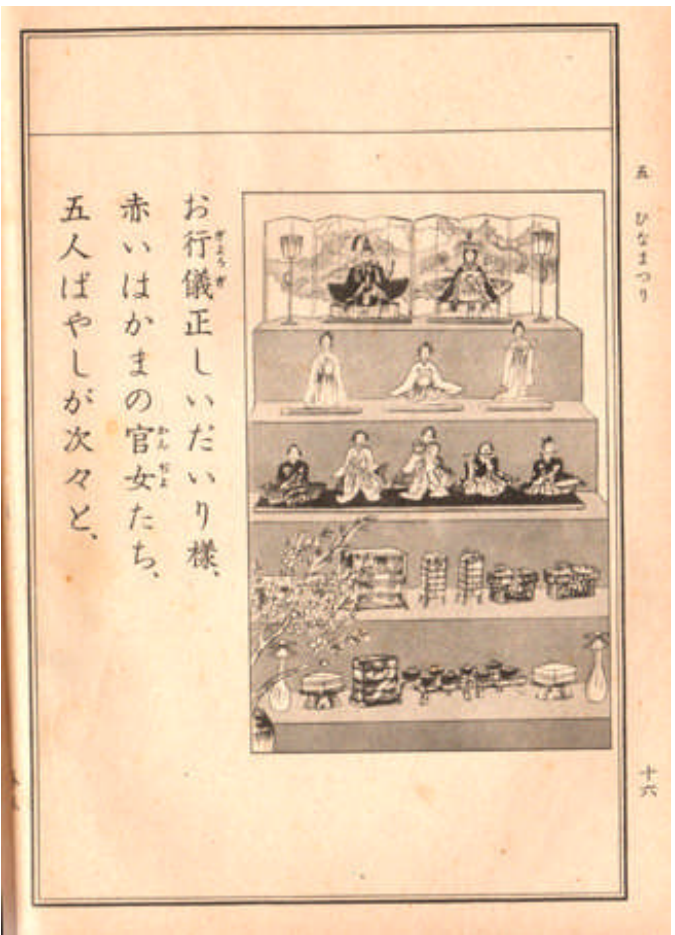 五 ひなまつり
お行儀正しいだいり様、
赤いはかまの官女たち、
五人ばやしが次々と、
十六